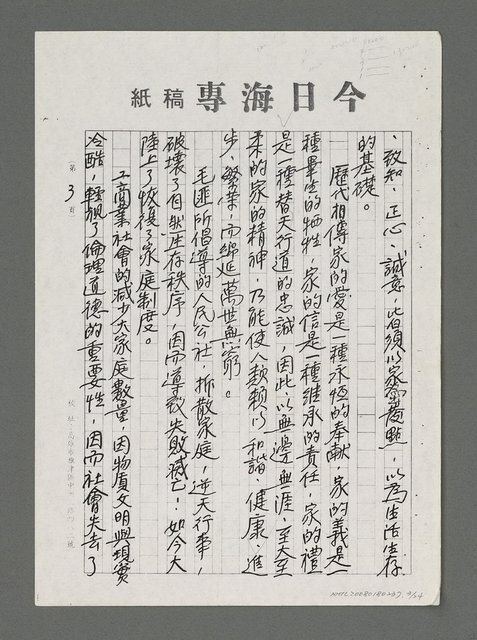 今日海專 稿紙
、致知、正心、誠意，皆須以家為發點，以為生活生存
的基礎。
歷代相傳家的愛是一種永恒的奉献，家的義是一
種畢生的牺牲，家的信是一種継承的責任，家的禮
是一種替天行道的忠誠，因此，以無邊無涯，至大至
柔的家的精神，乃能使人類賴以和諧、健康、進
步、繁荣，而綿延萬世無窮。
毛匪所倡導的人民公社，拆散家庭，逆天行事，
破壞了自然生存秩序，因而導致失敗滅亡！如今大
陸上了恢復了家庭制度。
工商業社會的减少大家庭數量，因物質文明與現實
冷酷，輕視了倫理道德的重要性，因而社會失去了
第 3 頁
校址：高雄市旗津區中
NMTL20080180207 3/24